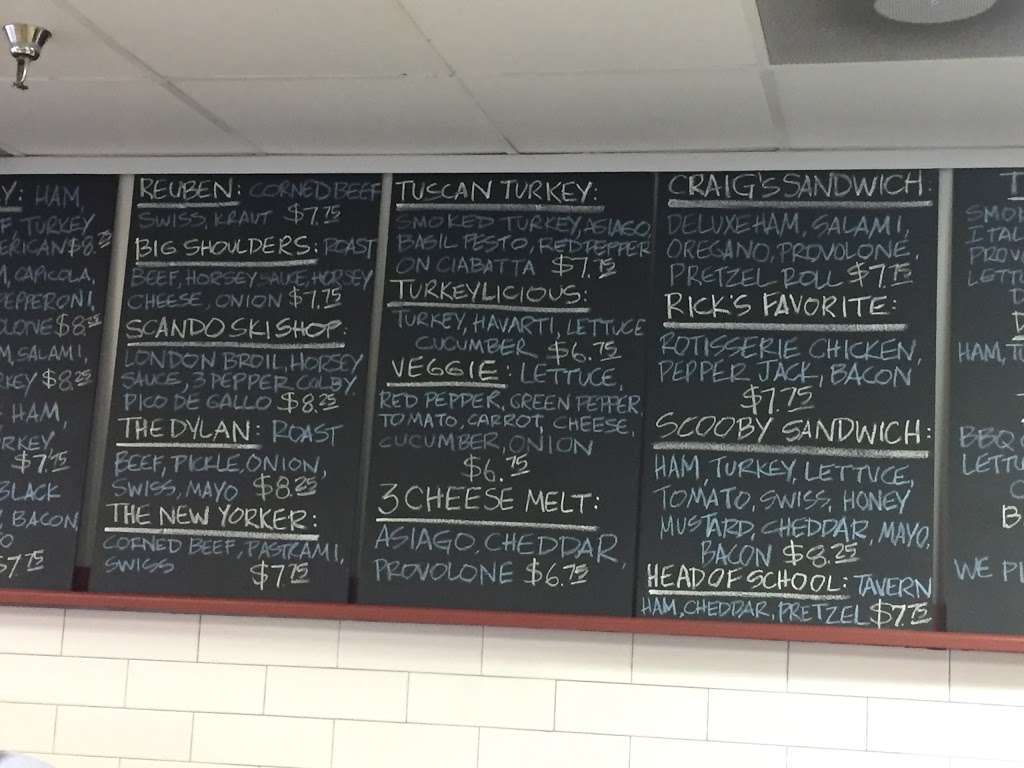 Y: HAM,
F, TURKEY
ERICAN $8.25
M, CAPICOLA,
PEPPERONI,
LONE $8.25
M, SALAMI,
RKEY $8.25
HAM,
RKEY,
$7.75
BLACK
, BACON
$7.75
REUBEN: CORNED BEEF
SWISS, KRAUT $7.75
BIG SHOULDERS: ROAST
BEEF, HORSEY SAUCE, HORSEY
CHEESE, ONION $7.75
SCANDO SKI SHOP:
LONDON BROIL, HORSEY
SAUCE, 3 PEPPER COLBY
PICO DE GALLO $8.25
THE DYLAN: ROAST
BEEF, PICKLE, ONION,
SWISS, MAYO $8.25
THE NEW YORKER:
CORNED BEEF, PASTRAMI,
SWISS $7.75
TUSCAN TURKEY:
SMOKED TURKEY, ASIAGO,
BASIL PESTO, RED PEPPER
ON CIABATTA $7.75
TURKEYLICIOUS:
TURKEY, HAVARTI, LETTUCE
CUCUMBER $6.75
VEGGIE: LETTUCE,
RED PEPPER, GREEN PEPPER,
TOMATO, CARROT, CHEESE,
CUCUMBER, ONION
$6.75
3 CHEESE MELT:
ASIAGO, CHEDDAR,
PROVOLONE $6.75
CRAIG'S SANDWICH:
DELUXE HAM, SALAMI,
OREGANO, PROVOLONE,
PRETZEL ROLL $7.75
RICK'S FAVORITE:
ROTISSERIE CHICKEN,
PEPPER JACK, BACON
$7.75
SCOOBY SANDWICH:
HAM, TURKEY, LETTUCE,
TOMATO, SWISS, HONEY
MUSTARD, CHEDDAR, MAYO,
BACON $8.25
HEAD OF SCHOOL: TAVERN
HAM, CHEDDAR, PRETZEL $7.75
SMOK
ITAL
PROV
LETTU
HAM, TU
BBQ
LETTU
WE PL